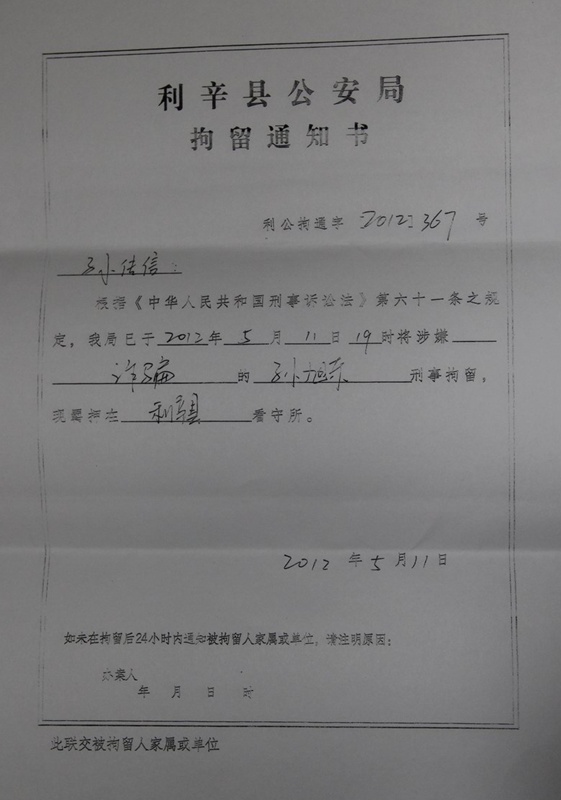 利辛县公安局
拘留通知书
利公拘通字〔2012〕367号
孙传信：
根据《中华人民共和国刑事诉讼法》第六十一条之规
定，我局已于2012年5月11日19时将涉嫌
诈骗的孙旭东刑事拘留，
现羁押在利辛县看守所。
2012年5月11日
如未在拘留后24小时内通知被拘留人家属或单位，请注明原因：
办案人
年 月 日 时
此联交被拘留人家属或单位